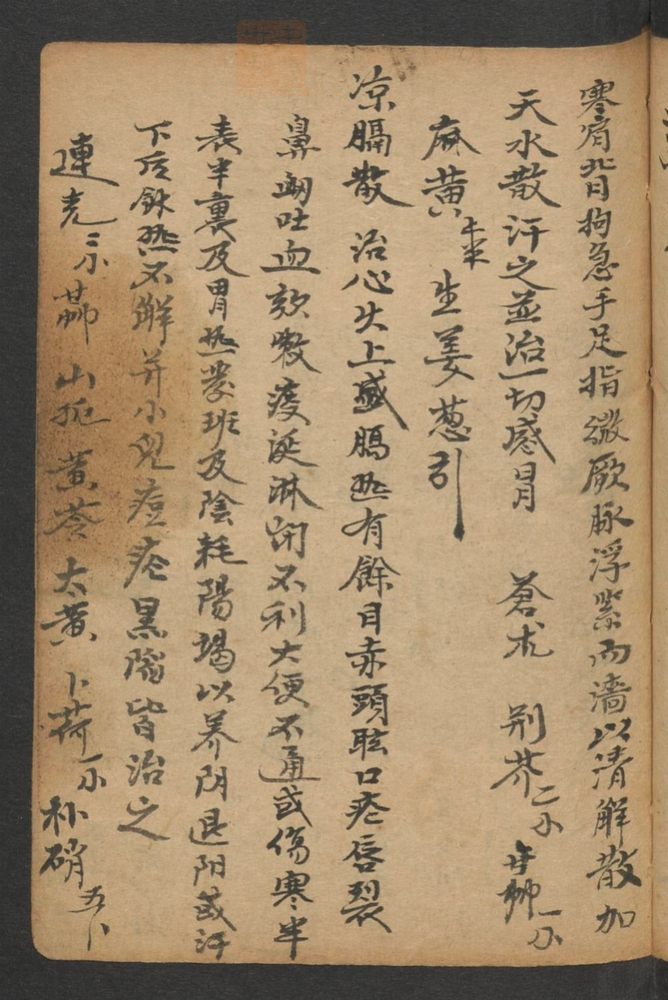 寒肩背拘急手足指微厥脉浮紧而濇以清解散加
天水散汗之並治一切感冒 蒼朮 别芥二小 甘艸一小
麻黄 生姜葱引
凉膈散 治心火上盛膈热有餘目赤頭眩口疮唇裂
鼻衄吐血欬嗽痰涎淋闭不利大便不通或傷寒半
表半裏及胃热發班及陰耗陽竭以养阴退阳或汗
下后餘热不解并小兒痘疮黑陷皆治之
連壳三小 甘艸 山梔 黄芩 大黄 卜荷一小 朴硝五卜